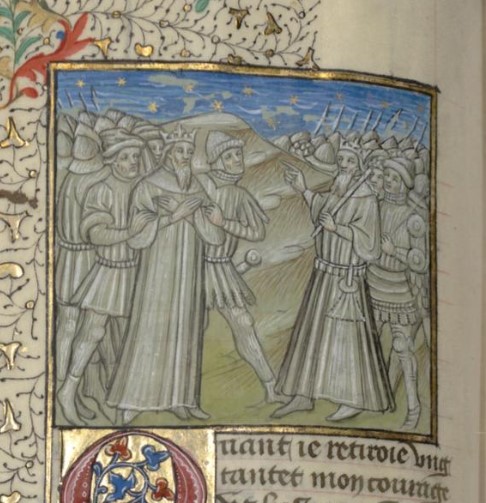 Quant ie retiroie vng
tantet mon couraige